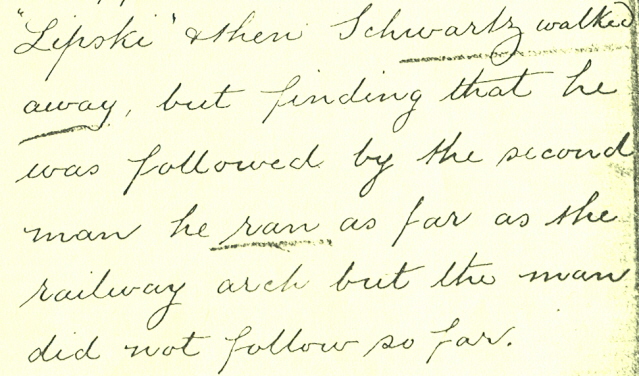 "Lipski" & then Schwartz walked
away, but finding that he
was followed by the second
man he ran as far as the
railway arch but the man
did not follow so far.